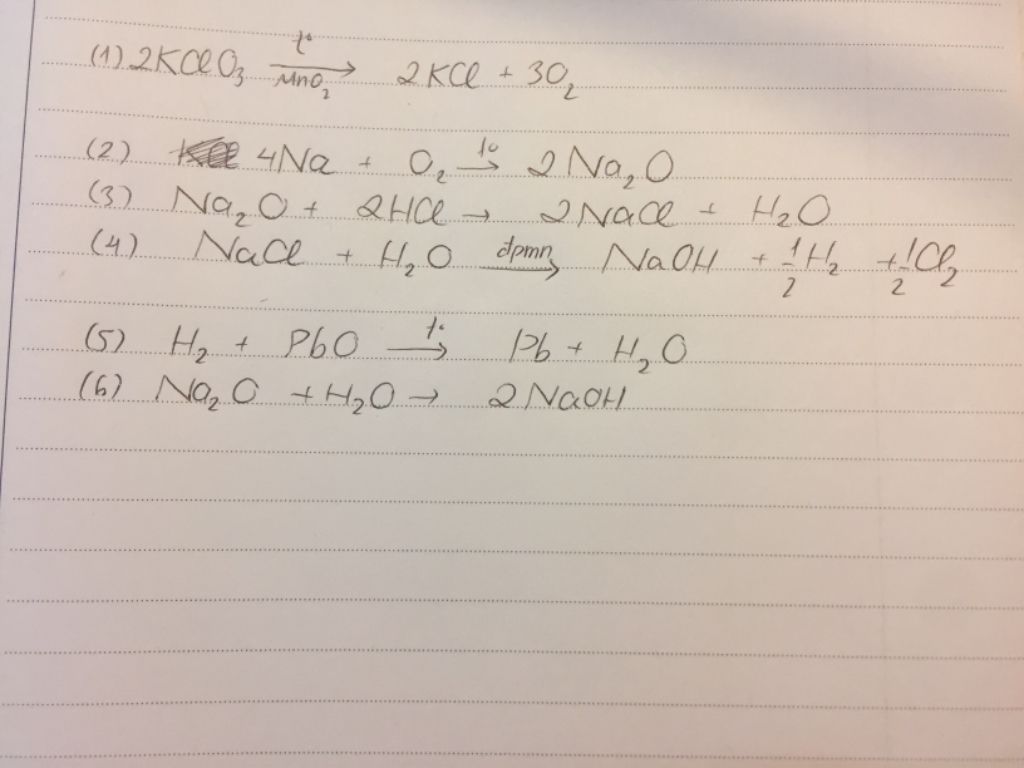 (1) 2KClO₃ —t°/MnO₂→ 2KCl + 3O₂
(2) 4Na + O₂ —t°→ 2Na₂O
(3) Na₂O + 2HCl → 2NaCl + H₂O
(4) NaCl + H₂O —đpmn→ NaOH + 1/2H₂ + 1/2Cl₂
(5) H₂ + PbO —t°→ Pb + H₂O
(6) Na₂O + H₂O → 2NaOH